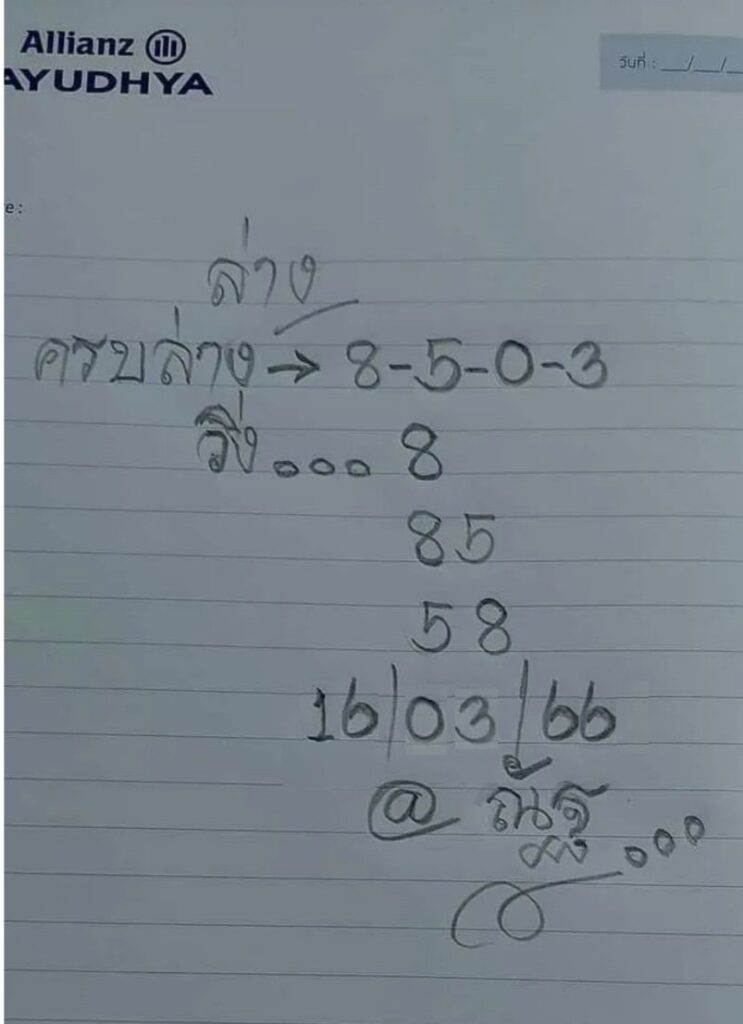 Allianz
AYUDHYA
วันที่ : __/__/__
e:
ล่าง
ครบล่าง→ 8-5-0-3
วิ่ง... 8
85
58
16/03/66
@ ณัฐ...